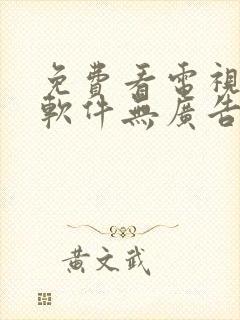 免費看電視
軟件無廣告
黃文武